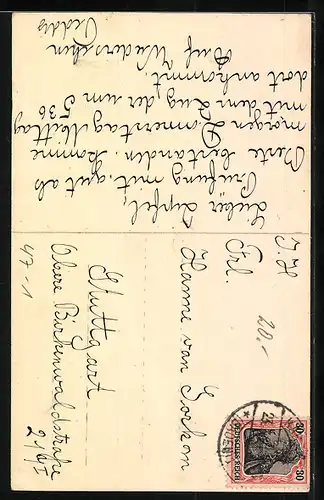 Lieber Zipfel,
Prüfung mit gut als
Beste bestanden. Komme
morgen Donnerstag Mittag
mit dem Zug, der um 5 36
dort ankommt.
Auf Wiedersehen
J. H
Frl.
Hanne van Gorkom
Stuttgart
Obere Birkenwaldstraße
20.-
47-1
30 30
DEUTSCHES REICH